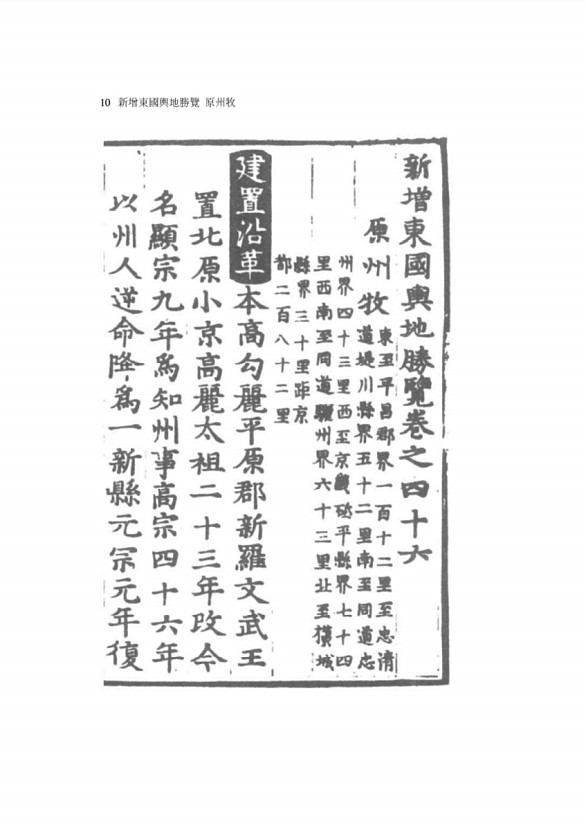 10 新增東國輿地勝覽 原州牧
新增東國輿地勝覽卷之四十六
原州牧
東至平昌郡界一百十二里至忠淸
道堤川縣界五十二里南至同道忠
州界四十三里西至京畿砥平縣界七十四
里西南至同道驪州界六十三里北至橫城
縣界三十里距京
都二百八十二里
建置沿革本高勾麗平原郡新羅文武王
置北原小京高麗太祖二十三年改今
名顯宗九年爲知州事高宗四十六年
以州人逆命降爲一新縣元宗元年復